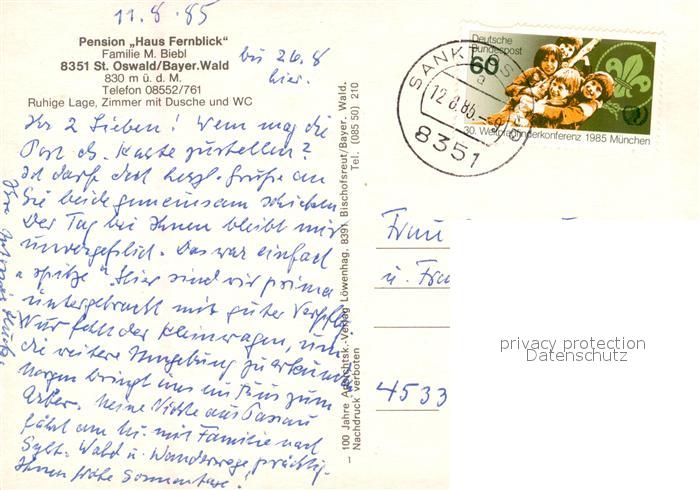 11.8.85
Pension „Haus Fernblick"
Familie M. Biebl
8351 St. Oswald/Bayer.Wald
830 m ü. d. M.
Telefon 08552/761
Ruhige Lage, Zimmer mit Dusche und WC
bis 26.8
hier.
Ihr 2 Lieben! Wem mag die
Post ds. Karte zustellen?
Ich darf doch herzl. Grüße an
Sie beide gemeinsam schicken.
Der Tag bei Ihnen bleibt mir
unvergeßlich. Das war einfach
"spitze". Hier sind wir prima
untergebracht mit guter Verpfle
Nur fehlt der Kleinwagen, um
die weitere Umgebung zu erkun
Morgen bringt uns ein Bus zum
Arber. Meine Nichte aus Passau
fährt am mit Familie nach
Sylt. Wald u. Wanderwege prächtig.
Ihnen frohe Sommertage!
Ihre
100 Jahre Ansichtsk.-Verlag Löwenhag, 8391 Bischofsreut/Bayer. Wald. Tel. (085 50) 210
Nachdruck verboten
1
Deutsche
Bundespost
60
30. Weltpfadfinderkonferenz 1985 München
SANKT OS
a
12.8.85
8351
Frau
u. Frau
4533
privacy protection
Datenschutz